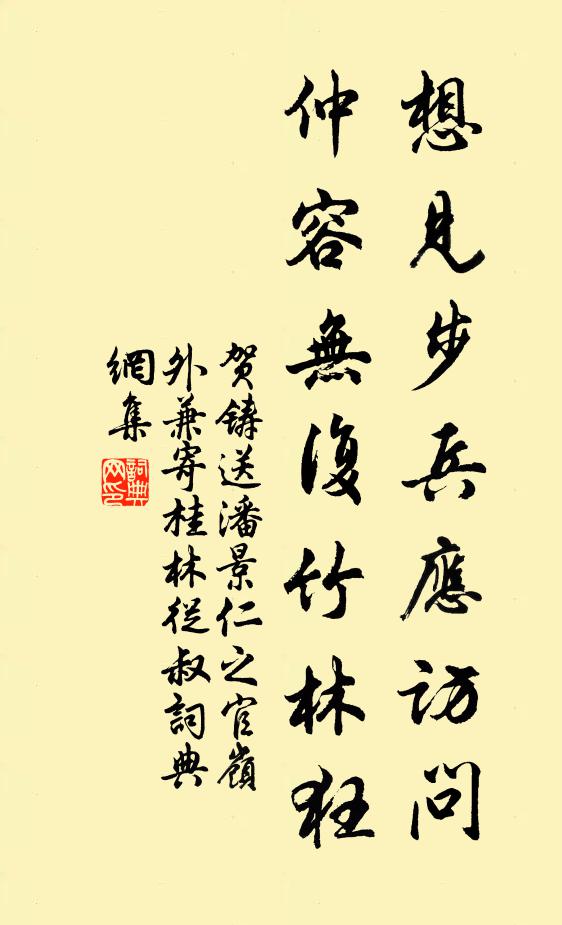 想見步兵應訪問
仲容無復竹林狂
贺鑄送潘景仁之官嶺
外兼寄桂林從叔詞典
網集
詞典
网印